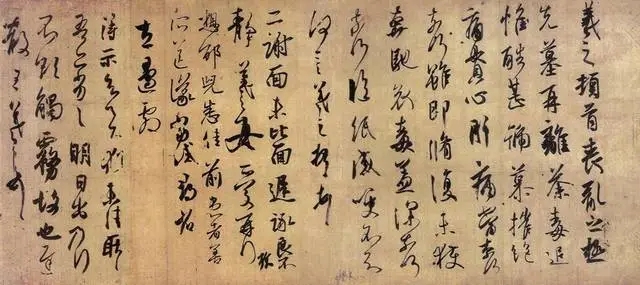 羲之頓首喪亂之極
先墓再離荼毒追
惟酷甚號慕摧絕
痛貫心肝痛當奈何
奈何雖即脩復未獲
奔馳哀毒益深奈何
奈何臨紙感哽不知
何言羲之頓首頓首
二謝面未比面遲詠良不
靜羲之女愛再拜
珍
想邪兒悉佳前患者善
左邊劇
得示知足下猶未佳耿耿
吾亦劣劣明日出乃行
不欲觸霧故也遲
散王羲之頓首